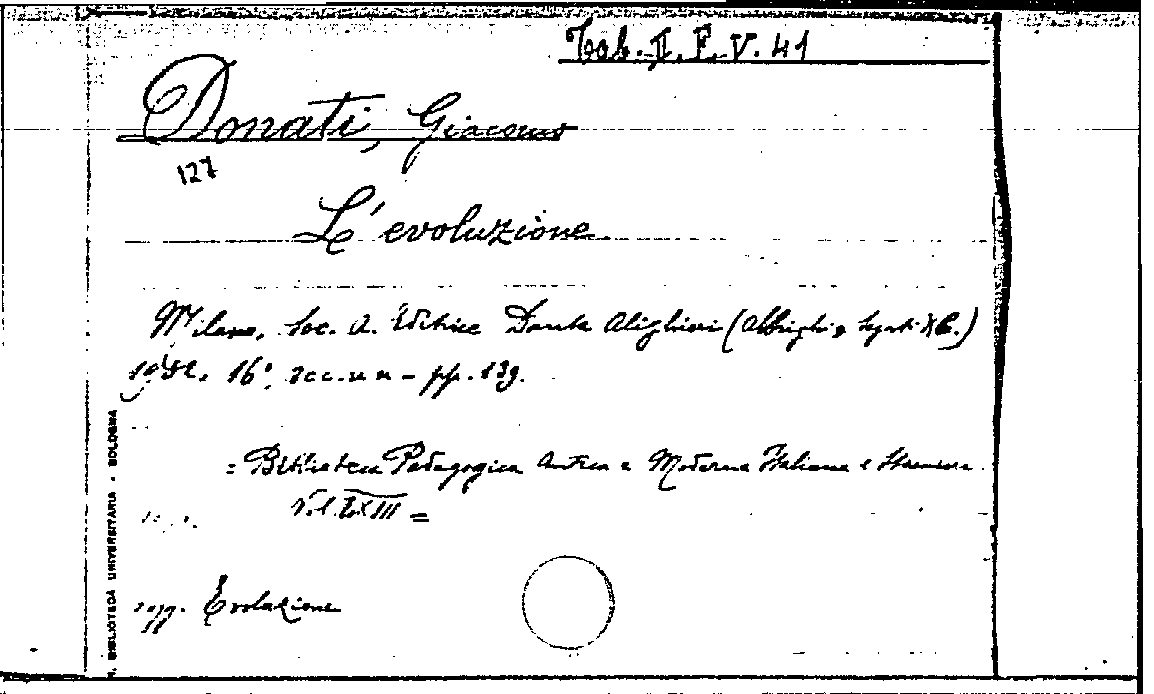 Tab. I. F. V. 41
Donati, Giacomo
127
L'evoluzione
Milano, Soc. A. Editrice Dante Alighieri (Albrighi, Segati & C.)
16°, pp. 139.
= Biblioteca Pedagogica Antica e Moderna Italiana e Straniera.
Vol. LXIII =
sogg. Evoluzione
R. BIBLIOTECA UNIVERSITARIA - BOLOGNA